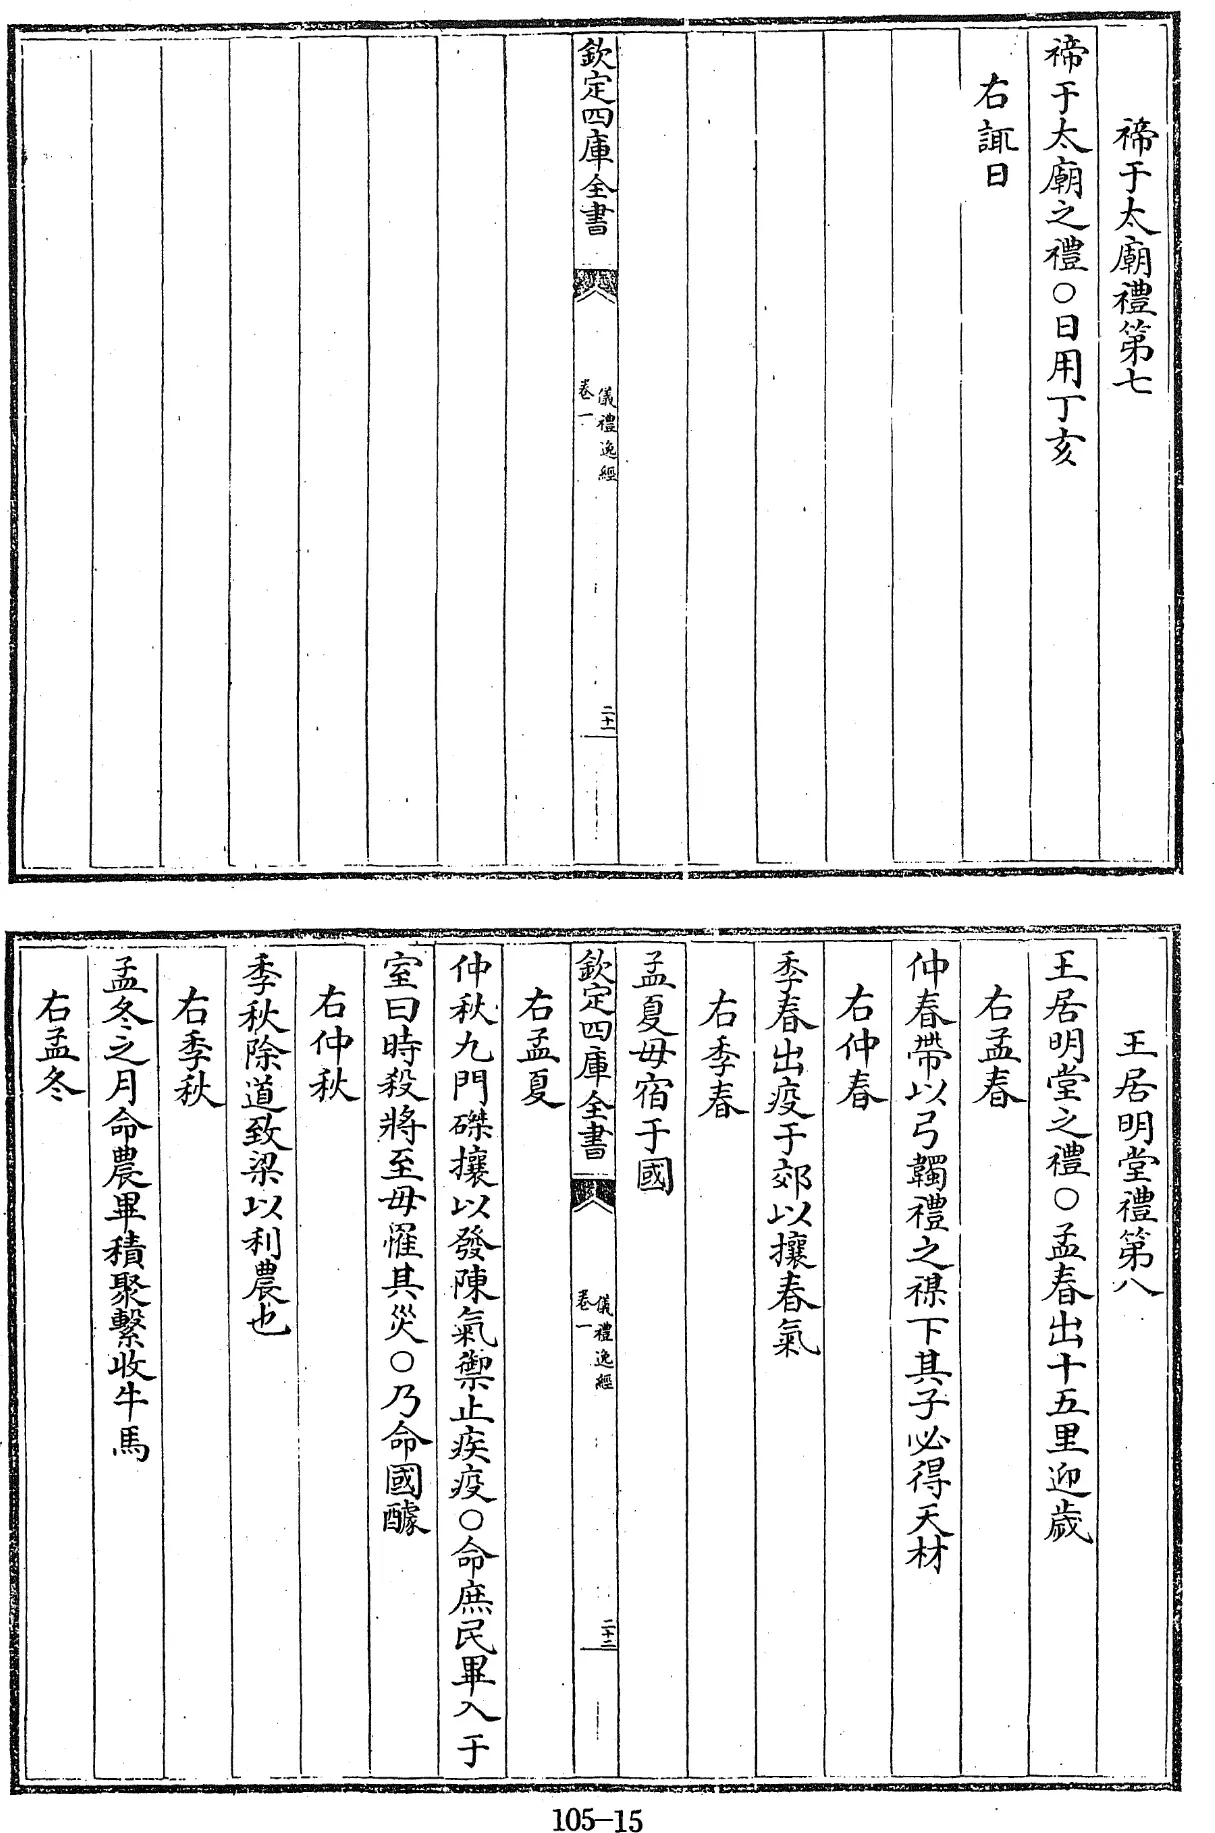 禘于太廟禮第七
禘于太廟之禮○日用丁亥
右諏日
欽定四庫全書
儀禮逸經
卷一
二十一
王居明堂禮第八
王居明堂之禮○孟春出十五里迎歲
右孟春
仲春帶以弓韣禮之禖下其子必得天材
右仲春
季春出疫于郊以攘春氣
右季春
孟夏毋宿于國
欽定四庫全書
儀禮逸經
卷一
二十二
右孟夏
仲秋九門磔攘以發陳氣禦止疾疫○命庶民畢入于
室曰時殺將至毋罹其災○乃命國醵
右仲秋
季秋除道致梁以利農也
右季秋
孟冬之月命農畢積聚繫收牛馬
右孟冬
105-15